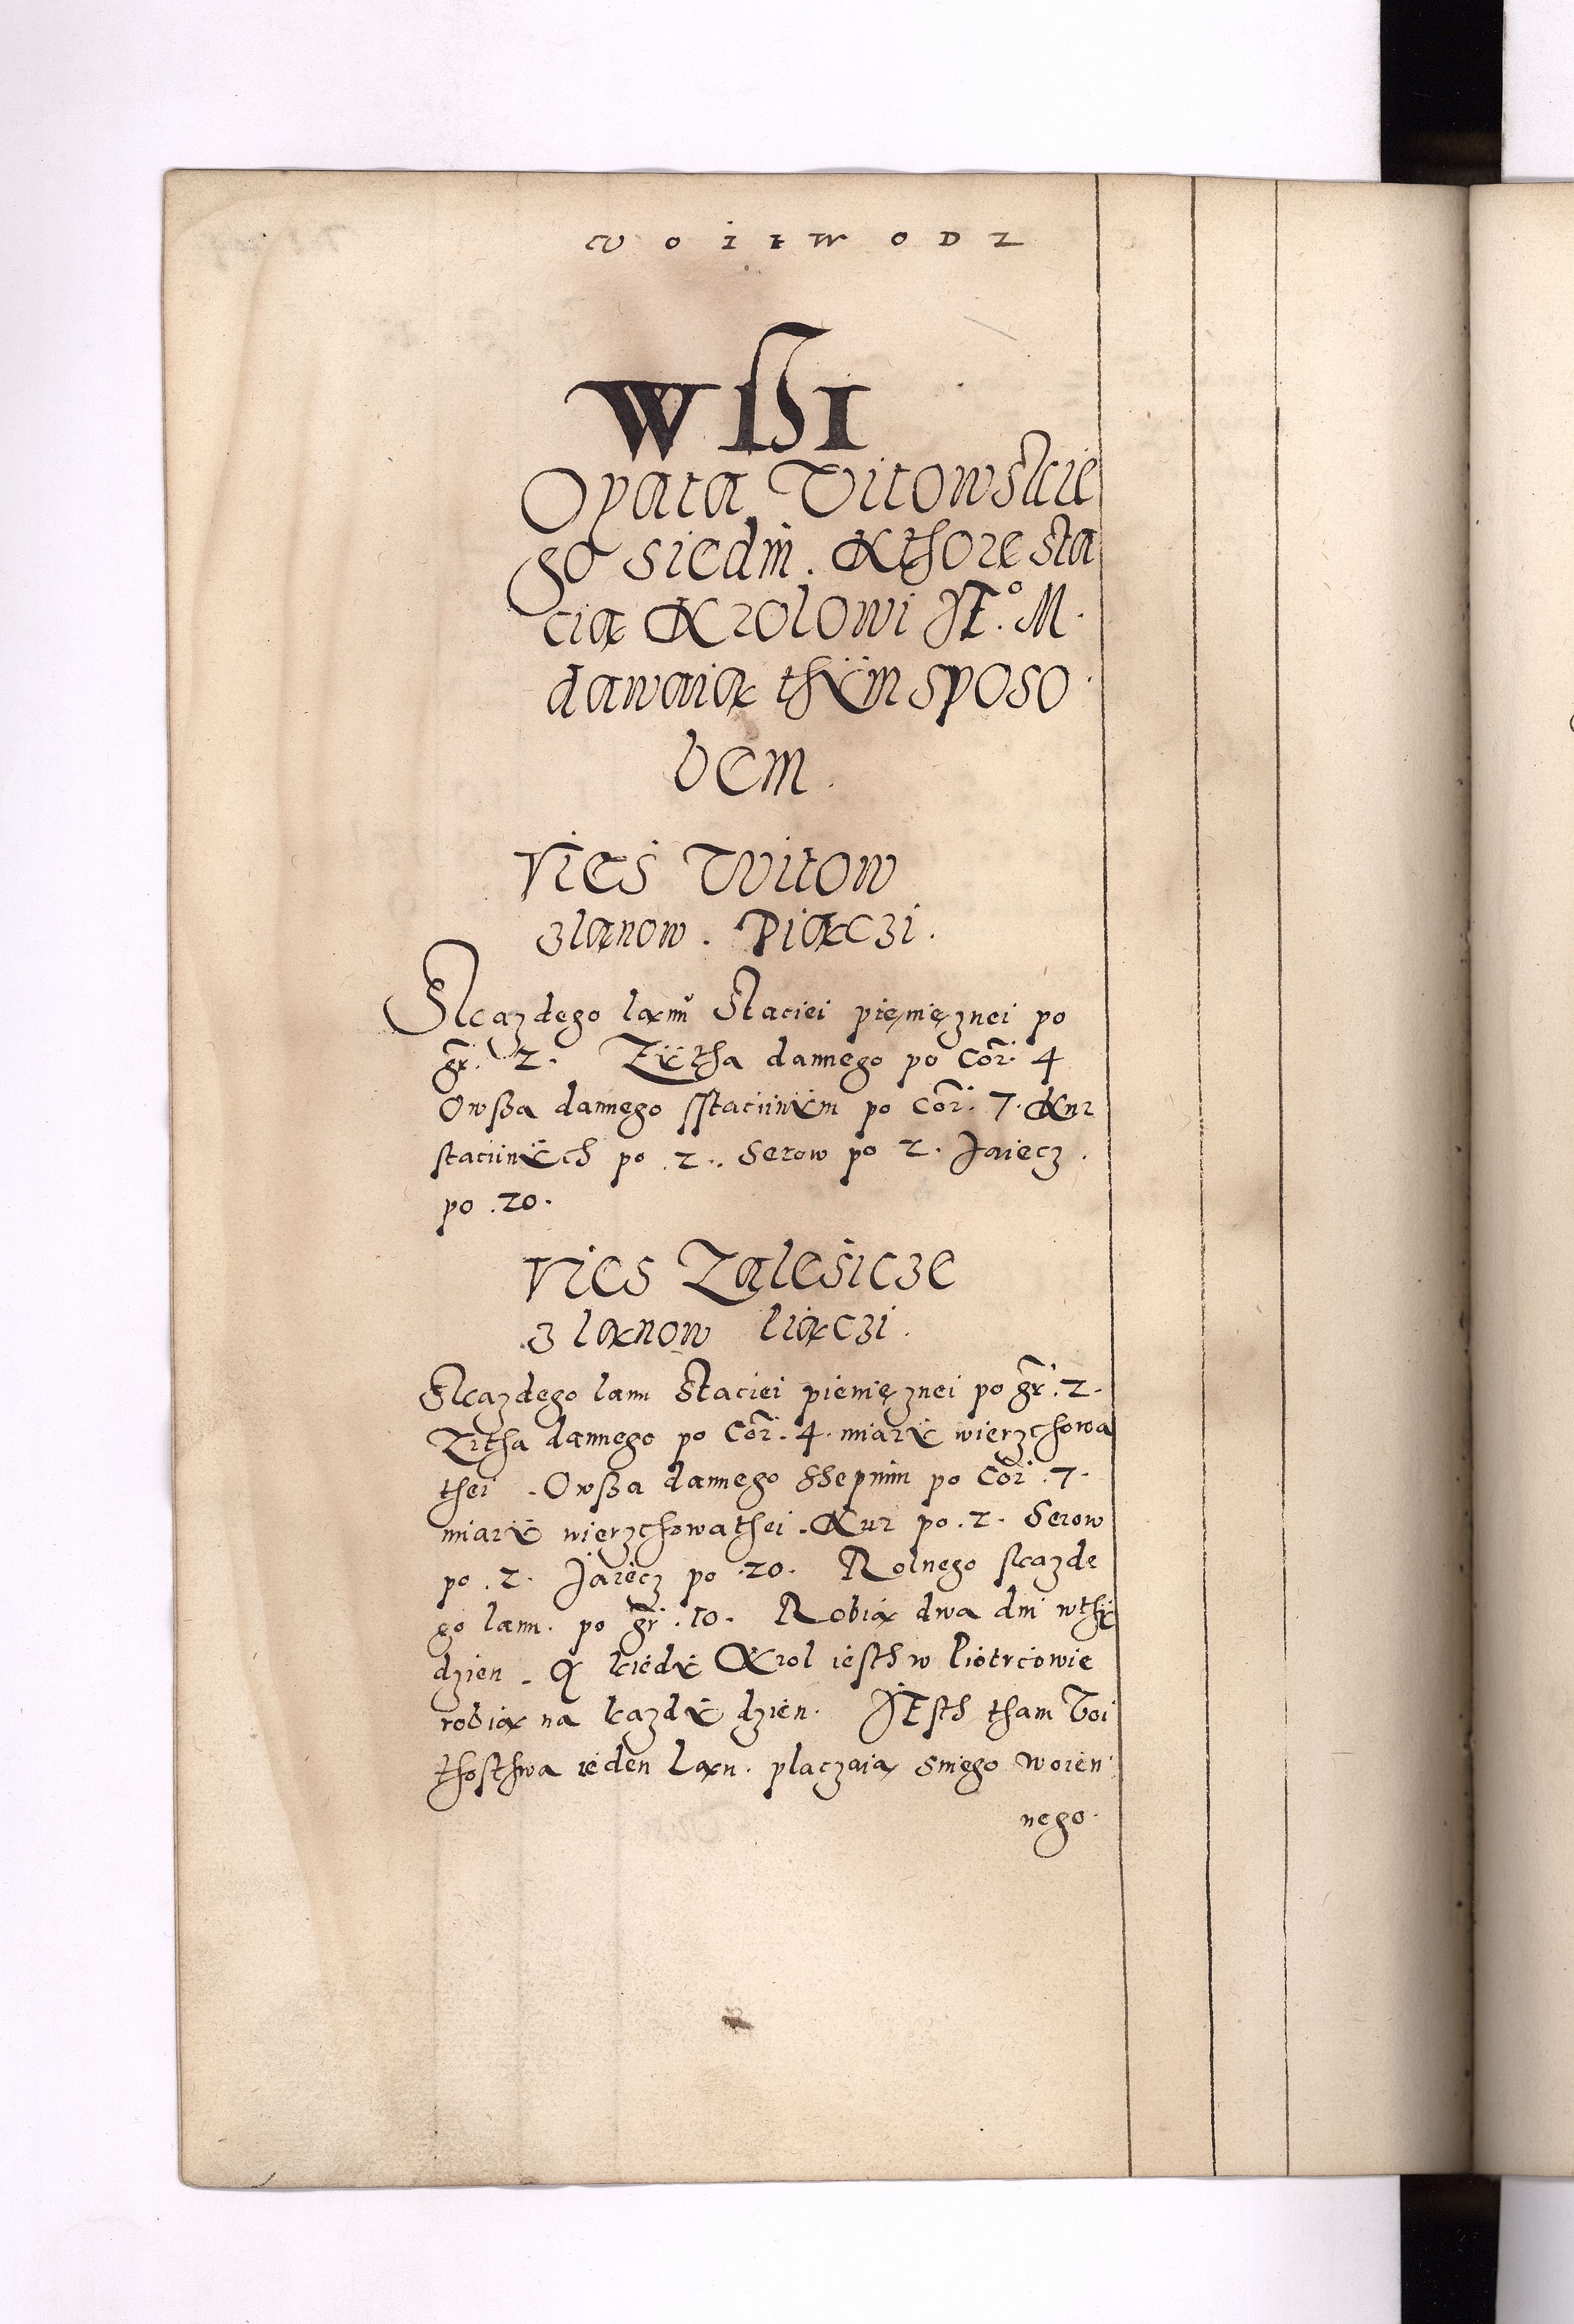 WOIEWODZ
Wſſi
Opata Vitowskie
go siedm. Kthore sta
cią Krolowi JE.º M.
dawaią thÿm sposo
bem.
Vies Witow
z lanow. Piączi.
Skazdego lanu Staciei pięnięznei po
gr. 2. Zÿtha dannego po Cor. 4
Owßa dannego sstaciinÿm po Cor. 7. Kur
staciinÿch po .2.. Serow po 2. Jaiecz.
po .20.
Vies Zalesicze
z lanow Piączi.
Skazdego lanu Staciei pienięznei po gr. 2.
Zitha dannego po Cor. 4. miarÿ wierzchowa
thei. Owßa dannego ssepnim po Cor. 7.
miarÿ wierzchowathei. Kur po .2. Serow
po .2. Jaiecz po .20. Rolnego skazde
go lanu. po gr. 10. Robią dwa dni wthÿ
dzien. A kiedÿ Krol iesth w Piotrcowie
robią na kazdÿ dzien. JEsth tham Voi
thosthwa ieden Lan. placzaią sniego woien
nego.